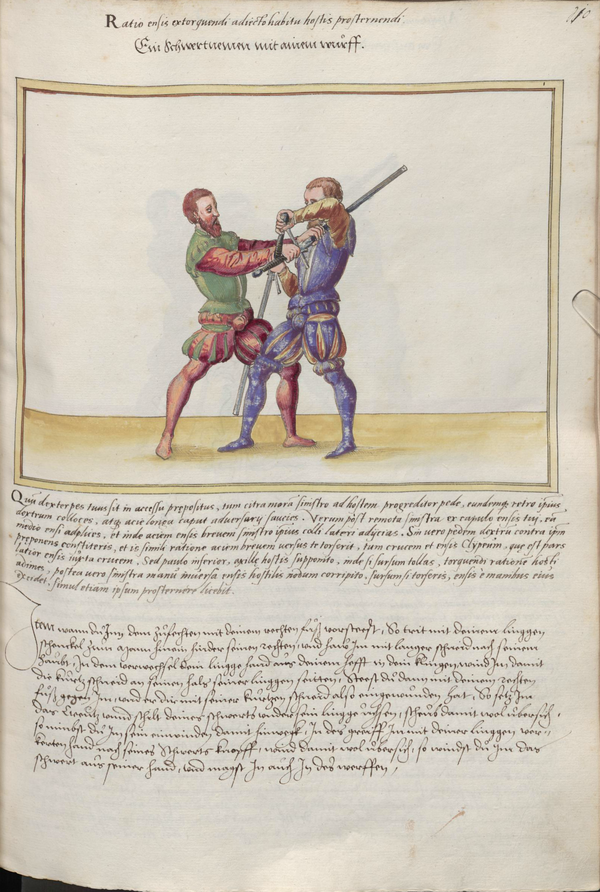 Ratio ensis extorquendi adiecto habitu hostis prosternendi.
Ein Schwertnemen mit ainem wurff.
Quū dexter pes tuus sit in accessu prepositus, tum citra morā sinistro ad hostem progreditor pede, eundemq; retro ipsius
dextrum colloces, atq; acie longa caput adversarij saucies. Verum post remota sinistra ex capulo ensis tui, eū
medio ensi adplices, et inde aciem ensis brevem sinistro ipsius colli lateri adijcias. Sin vero pedem dextrū contra ipm̄
preponens constiteris, et is simili ratione aciem brevem versus te torserit, tum crucem et ensis clypeum, que est pars
latior ensis iuxta crucem, sed paulo inferior, axille hostis supponito, inde si sursum tollas, torquendi rationē hosti
adimes, postea vero sinistra manu inversa ensis hostilis nodum corripito, sursum si torseris, ensis e manibus eius
excidet, simul etiam ipsum prosternere licebit.
Item wann du Im dem zufechten mit deinem rechten fuß vorsteest, So trit mit deinem linggen
schenckel zum a hinein hinder seinen rechten, und haw In mit langer schneid nach seinem
haubt, In dem verwechsel dein lingge hand aus deinem hefft in dein klingen, wind Im damit
die kurtz schneid an seinen hals seiner linggen seitten, Steest du dann mit deinem rechten
fuß gegen Im, und er dir mit seiner kurtzen schneid also eingewunden hat, So setz Im
das Creutz unnd schilt deines schwerts under sein lingge uchsen, scheub damit wol ubersich,
so nimbst du Im sein einwinden damit hinwegk, In des greiff Im mit deiner linggen ver-
kerten hand nach seines Schwerts knopff, wind damit wol ubersich, so windst du Im das
schwert aus seiner hand, und magst In auch In des werffen,